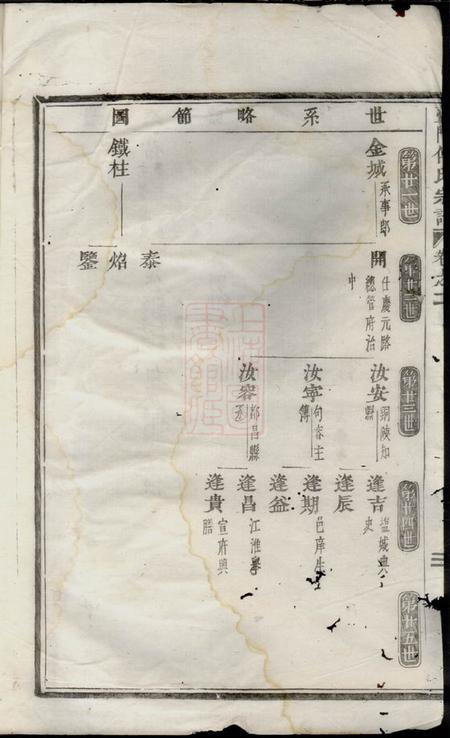 世系略節圖
第廿一世
金城 承事郎
鐵柱
第廿二世
開 任慶元路總管府治中
泰
焰
鑒
第廿三世
汝安 銅陵知縣
汝寧 句容主簿
汝容 都昌縣丞
第廿四世
逢吉 塩城典史
逢辰
逢期 邑庠生
逢益
逢昌 江淮學
逢貴 宣府興膳
第廿五世
氏宗譜